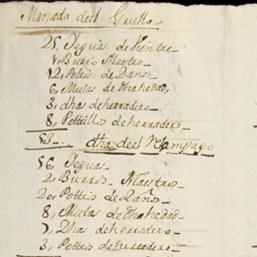 Manada deel Grullo
25, Yeguas de Vientre
1, Burro Maestro
12, Potros de 2 años
6, Mulas de
3, dhas de herradero
8, Pottillos de herradero
53 dha deel
56, Yeguas
2, Burros Maestros
20, Pottros de 2 años
8, Mulas de
7, Dhas de herradero
3, Pottros de herradero